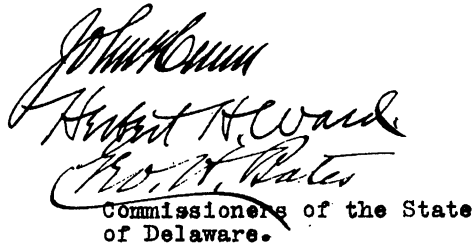 John Hunn
Herbert H. Ward.
Geo. H. Bates
Commissioners of the State
of Delaware.